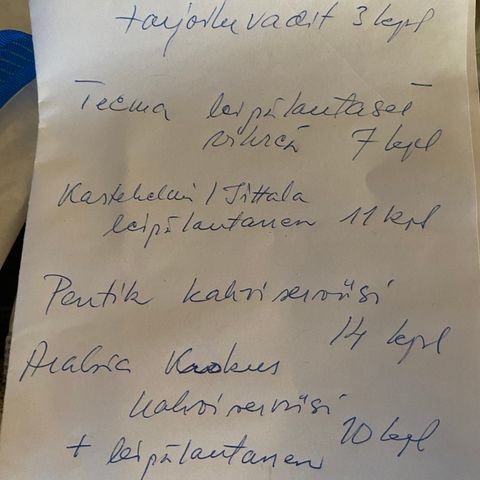 tarjoiluvadit 3 kpl
Teema leipälautaset
vihreä 7 kpl
Kastehelmi / Iittala
leipälautanen 11 kpl
Pentik kahviserviisi
14 kpl
Arabia Krokus
kahviserviisi
10 kpl
+ leipälautanen